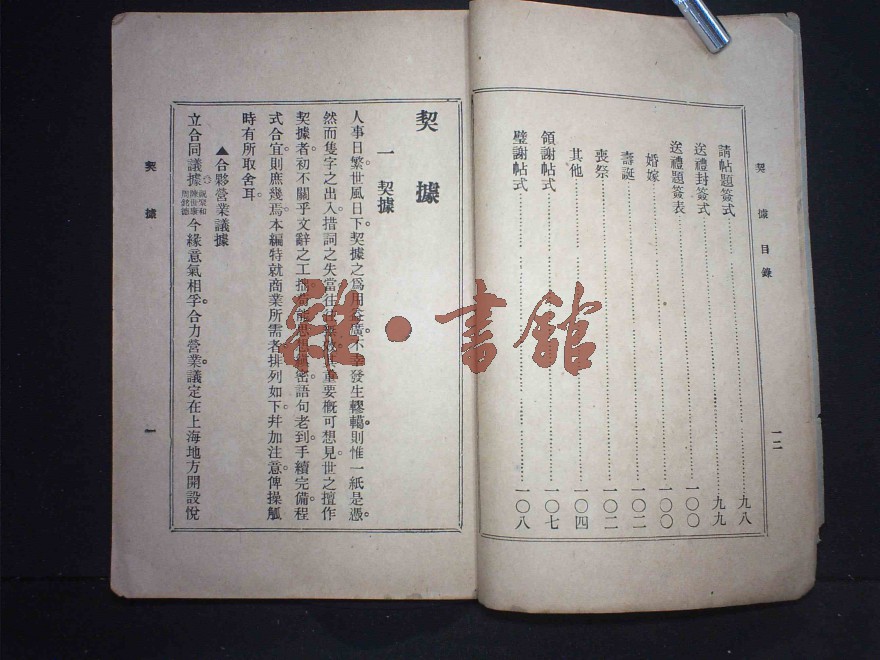 契據目錄
請帖題簽式 九八
送禮封簽式 九九
送禮題簽表 一〇〇
婚嫁 一〇〇
壽誕 一〇二
喪祭 一〇二
其他 一〇四
領謝帖式 一〇七
璧謝帖式 一〇八
一二
契據
一 契據
人事日繁。世風日下。契據之爲用益廣。不幸發生轇轕。則惟一紙是憑。
然而隻字之出入。措詞之失當。往往 其重要概可想見。世之擅作
契據者。初不關乎文辭之工拙。 密。語句老到。手續完備。程
式合宜。則庶幾焉。本編特就商業所需者。排列如下。幷加注意。俾操觚
時有所取舍耳。
▲合夥營業議據
立合同議據 今緣意氣相孚。合力營業。議定在上海地方開設悅
契據
一
雜·書館